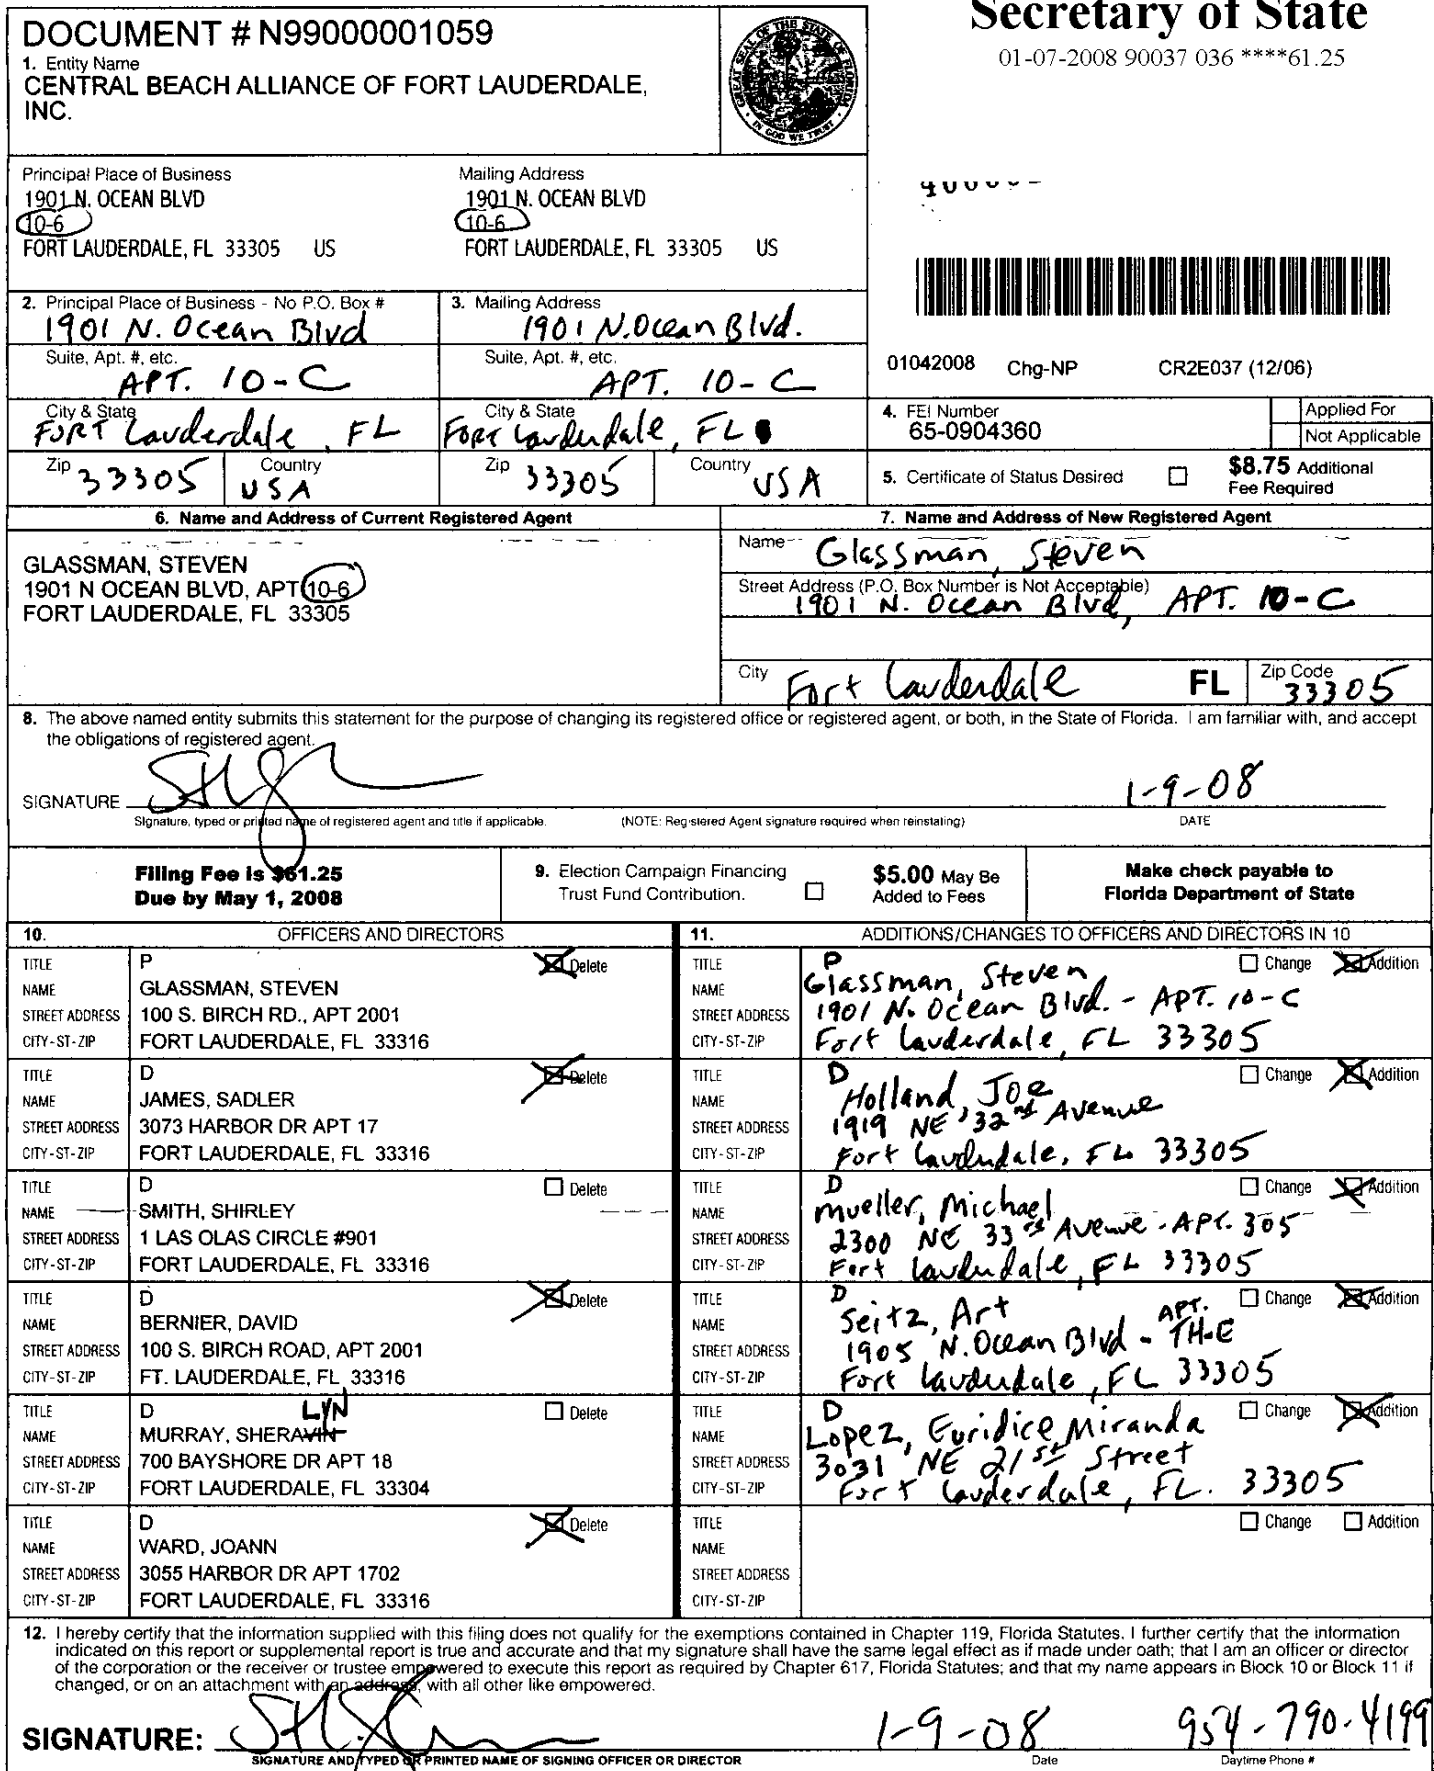 Secretary of State
01-07-2008 90037 036 ****61.25
DOCUMENT # N99000001059
1. Entity Name
CENTRAL BEACH ALLIANCE OF FORT LAUDERDALE,
INC.
GREAT SEAL OF THE STATE OF FLORIDA
IN GOD WE TRUST
Principal Place of Business
1901 N. OCEAN BLVD
10-6
FORT LAUDERDALE, FL 33305 US
Mailing Address
1901 N. OCEAN BLVD
10-6
FORT LAUDERDALE, FL 33305 US
2. Principal Place of Business - No P.O. Box #
1901 N. Ocean Blvd
Suite, Apt. #, etc.
APT. 10-C
City & State
Fort Lauderdale, FL
Zip 33305
Country USA
3. Mailing Address
1901 N. Ocean Blvd.
Suite, Apt. #, etc.
APT. 10-C
City & State
Fort Lauderdale, FL
Zip 33305
Country USA
01042008 Chg-NP CR2E037 (12/06)
4. FEI Number
65-0904360
Applied For
Not Applicable
5. Certificate of Status Desired
$8.75 Additional
Fee Required
6. Name and Address of Current Registered Agent
GLASSMAN, STEVEN
1901 N OCEAN BLVD, APT 10-6
FORT LAUDERDALE, FL 33305
7. Name and Address of New Registered Agent
Name Glassman, Steven
Street Address (P.O. Box Number is Not Acceptable)
1901 N. Ocean Blvd, APT. 10-C
City Fort Lauderdale FL Zip Code 33305
8. The above named entity submits this statement for the purpose of changing its registered office or registered agent, or both, in the State of Florida. I am familiar with, and accept
the obligations of registered agent.
SIGNATURE 1-9-08
Signature, typed or printed name of registered agent and title if applicable. (NOTE: Registered Agent signature required when reinstating) DATE
Filing Fee is $61.25
Due by May 1, 2008
9. Election Campaign Financing
Trust Fund Contribution.
$5.00 May Be
Added to Fees
Make check payable to
Florida Department of State
10. OFFICERS AND DIRECTORS
TITLE P Delete
NAME GLASSMAN, STEVEN
STREET ADDRESS 100 S. BIRCH RD., APT 2001
CITY-ST-ZIP FORT LAUDERDALE, FL 33316
TITLE D Delete
NAME JAMES, SADLER
STREET ADDRESS 3073 HARBOR DR APT 17
CITY-ST-ZIP FORT LAUDERDALE, FL 33316
TITLE D Delete
NAME SMITH, SHIRLEY
STREET ADDRESS 1 LAS OLAS CIRCLE #901
CITY-ST-ZIP FORT LAUDERDALE, FL 33316
TITLE D Delete
NAME BERNIER, DAVID
STREET ADDRESS 100 S. BIRCH ROAD, APT 2001
CITY-ST-ZIP FT. LAUDERDALE, FL 33316
TITLE D LYN Delete
NAME MURRAY, SHERAVIN
STREET ADDRESS 700 BAYSHORE DR APT 18
CITY-ST-ZIP FORT LAUDERDALE, FL 33304
TITLE D Delete
NAME WARD, JOANN
STREET ADDRESS 3055 HARBOR DR APT 1702
CITY-ST-ZIP FORT LAUDERDALE, FL 33316
11. ADDITIONS/CHANGES TO OFFICERS AND DIRECTORS IN 10
TITLE P Change Addition
NAME Glassman, Steven
STREET ADDRESS 1901 N. Ocean Blvd. - APT. 10-C
CITY-ST-ZIP Fort Lauderdale, FL 33305
TITLE D Change Addition
NAME Holland, Joe
STREET ADDRESS 1919 NE 32nd Avenue
CITY-ST-ZIP Fort Lauderdale, FL 33305
TITLE D Change Addition
NAME Mueller, Michael
STREET ADDRESS 2300 NE 33rd Avenue - APT. 305
CITY-ST-ZIP Fort Lauderdale, FL 33305
TITLE D Change Addition
NAME Seitz, Art
STREET ADDRESS 1905 N. Ocean Blvd - APT. TH-E
CITY-ST-ZIP Fort Lauderdale, FL 33305
TITLE D Change Addition
NAME Lopez, Euridice Miranda
STREET ADDRESS 3031 NE 21st Street
CITY-ST-ZIP Fort Lauderdale, FL. 33305
TITLE Change Addition
NAME
STREET ADDRESS
CITY-ST-ZIP
12. I hereby certify that the information supplied with this filing does not qualify for the exemptions contained in Chapter 119, Florida Statutes. I further certify that the information
indicated on this report or supplemental report is true and accurate and that my signature shall have the same legal effect as if made under oath; that I am an officer or director
of the corporation or the receiver or trustee empowered to execute this report as required by Chapter 617, Florida Statutes; and that my name appears in Block 10 or Block 11 if
changed, or on an attachment with an address, with all other like empowered.
SIGNATURE: 1-9-08 954-790-4199
SIGNATURE AND TYPED OR PRINTED NAME OF SIGNING OFFICER OR DIRECTOR Date Daytime Phone #